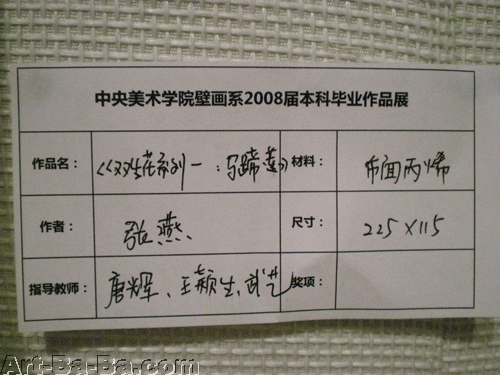 中央美术学院壁画系2008届本科毕业作品展
作品名： 《双生花系列一：马蹄莲》 材料： 布面丙烯
作者： 张燕 尺寸： 225×115
指导教师： 唐晖、王颖生、武艺 奖项：
Art-Ba-Ba.com